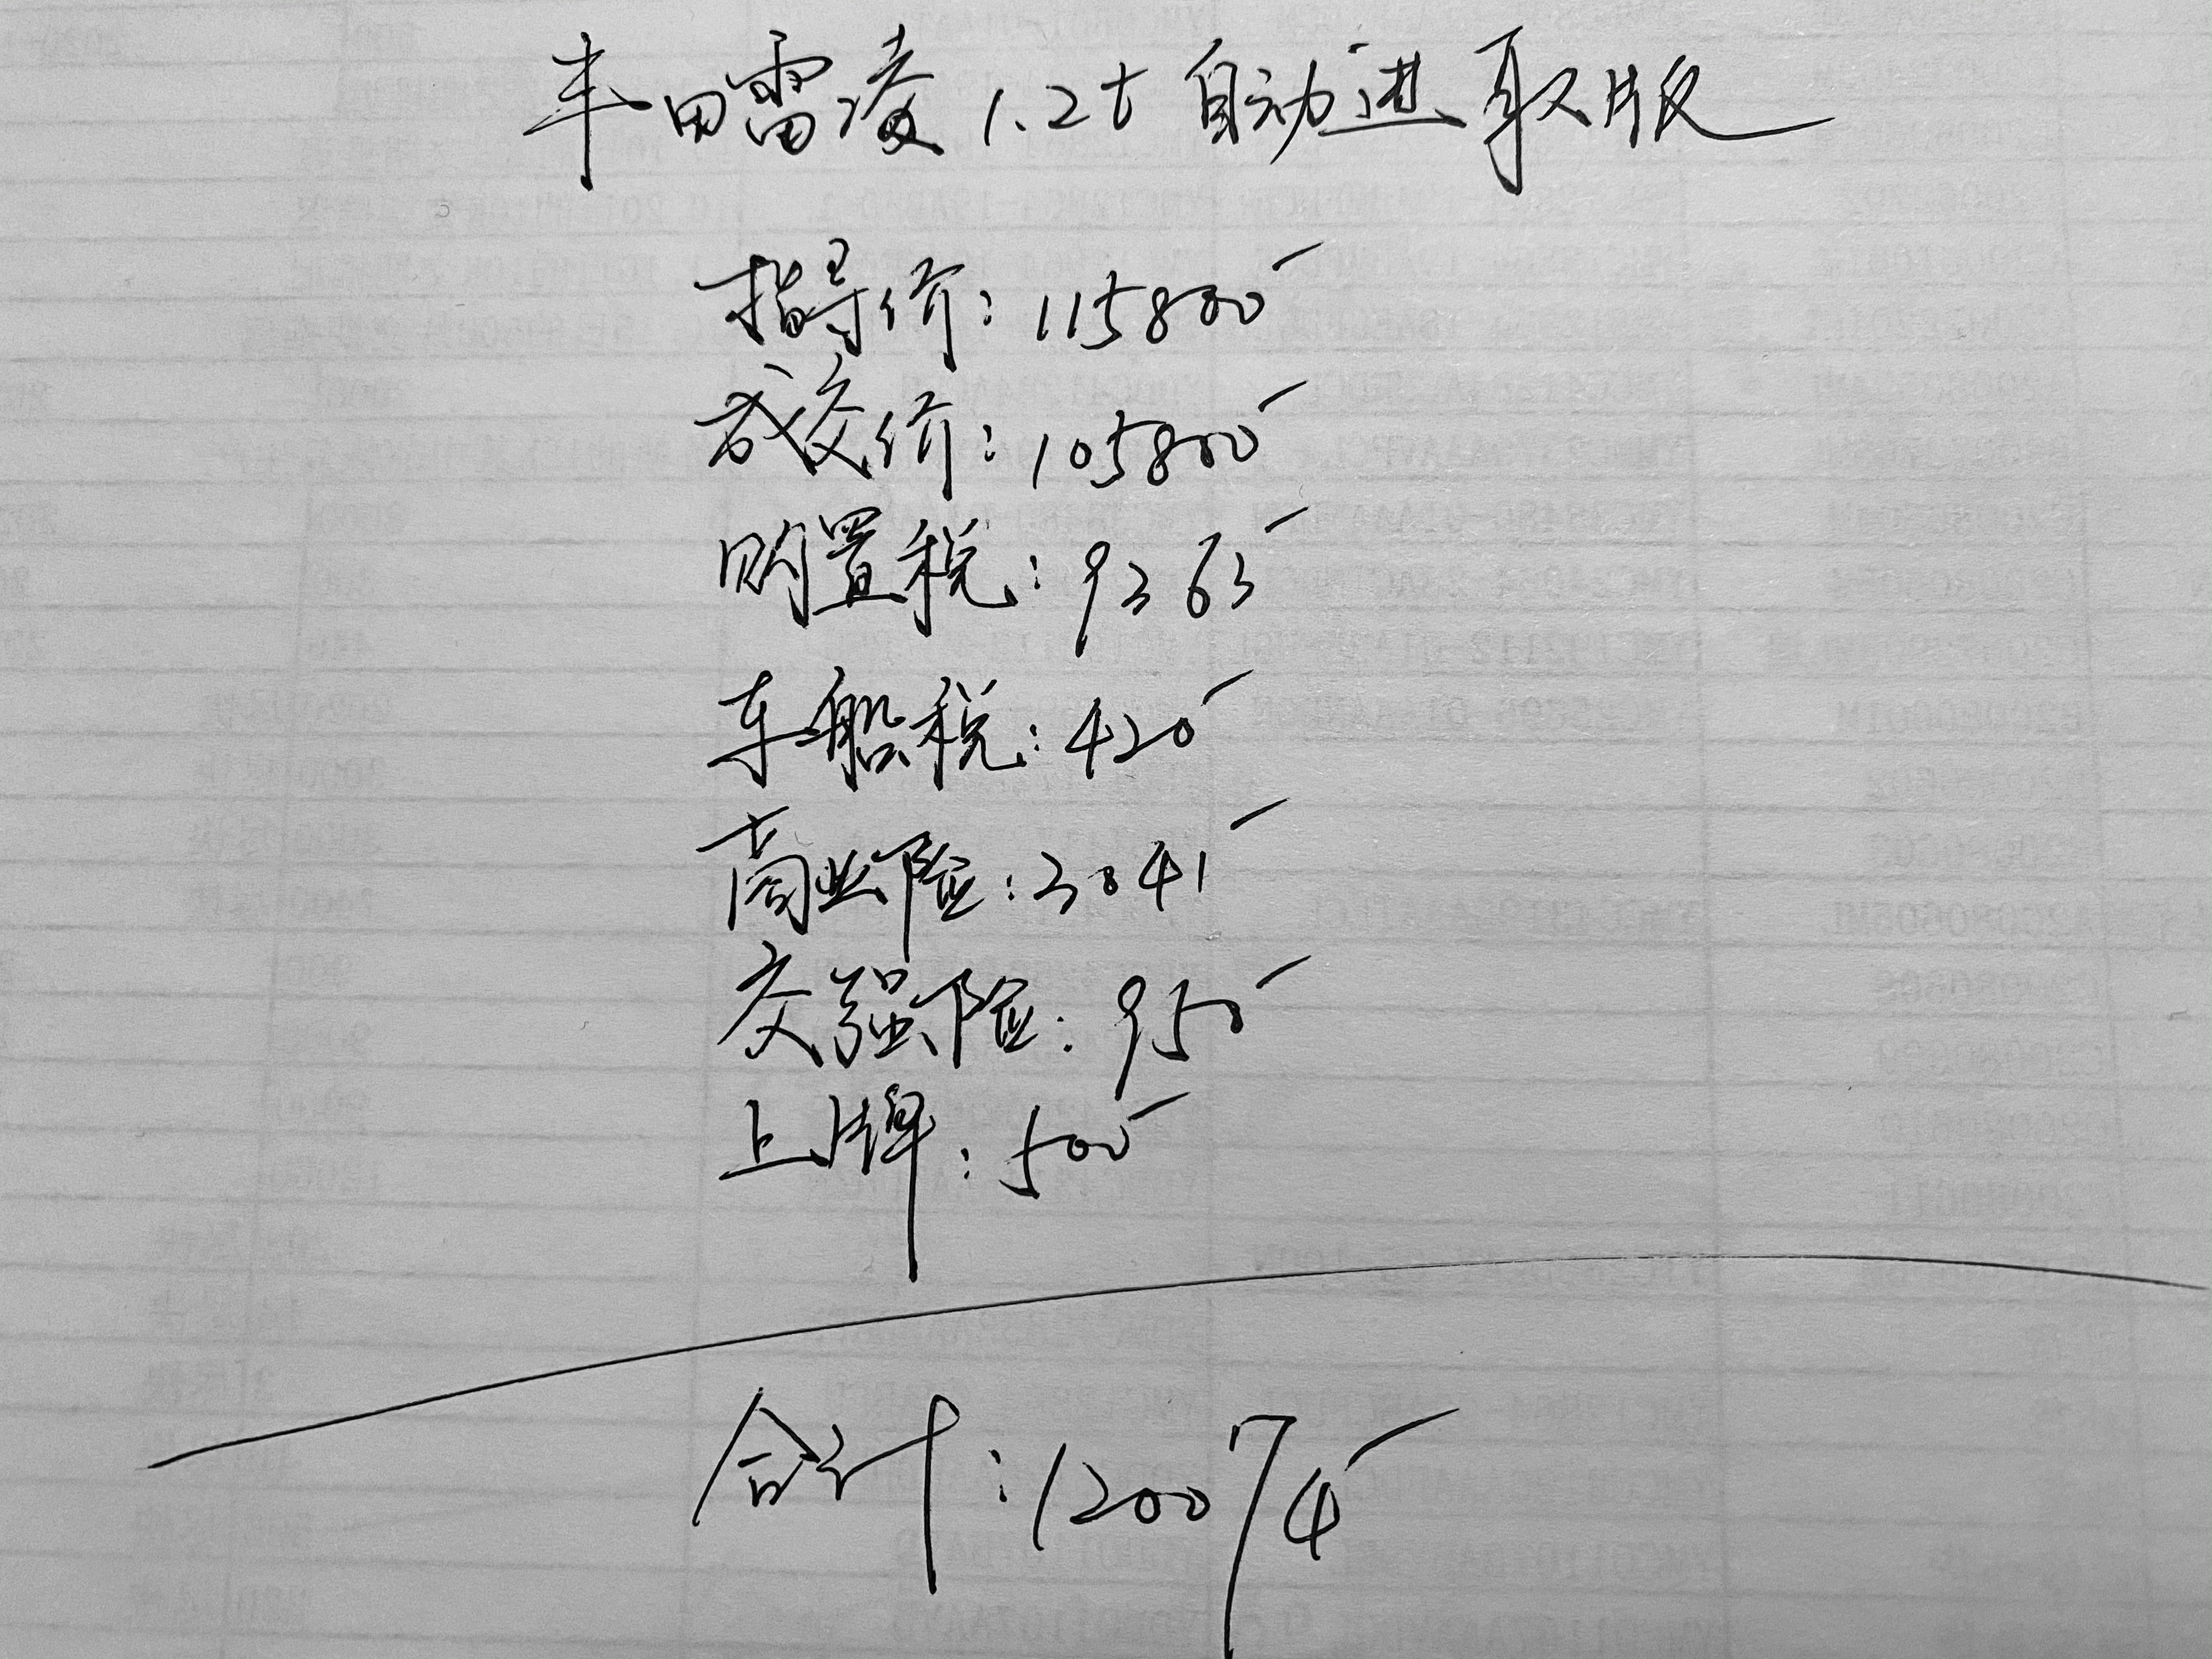 丰田雷凌1.2t自动进取版
指导价：115800
成交价：105800
购置税：9363
车船税：420
商业险：3041
交强险：950
上牌：500
合计：120074